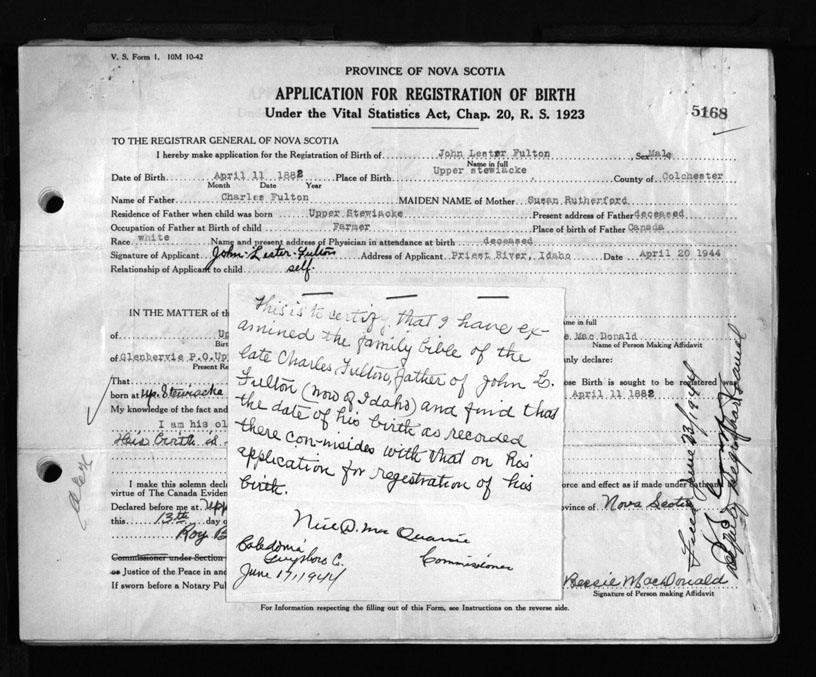 V. S. Form 1. 10M 10-42
PROVINCE OF NOVA SCOTIA
APPLICATION FOR REGISTRATION OF BIRTH
Under the Vital Statistics Act, Chap. 20, R. S. 1923
5168
TO THE REGISTRAR GENERAL OF NOVA SCOTIA
I hereby make application for the Registration of Birth of John Lester Fulton, Sex Male
Name in full
Date of Birth April 11 1882 Place of Birth Upper Stewiacke, County of Colchester
Month Date Year
Name of Father Charles Fulton MAIDEN NAME of Mother Susan Rutherford
Residence of Father when child was born Upper Stewiacke Present address of Father deceased
Occupation of Father at Birth of child Farmer Place of birth of Father Canada
Race white Name and present address of Physician in attendance at birth deceased
Signature of Applicant John Lester Fulton Address of Applicant Priest River, Idaho Date April 20 1944
Relationship of Applicant to child self.
IN THE MATTER of the
me in full
of Up
Mac Donald
Birt
Name of Person Making Affidavit
of Glenbervie P.O. Up
nly declare:
Present Re
That
ose Birth is sought to be registered was
born at Up. Stewiacke
April 11 1882
My knowledge of the fact and
I am his ol
His birth is
I make this solemn decl
orce and effect as if made under oath
virtue of The Canada Eviden
Declared before me at Upp
ovince of Nova Scotia
this 13th day o
Roy B
Commissioner under Section
or Justice of the Peace in and
If sworn before a Notary Pu
Bessie MacDonald
Signature of Person making Affidavit
For Information respecting the filling out of this Form, see Instructions on the reverse side.
This is to certify that I have ex-
amined the family bible of the
late Charles Fulton, father of John L.
Fulton (now of Idaho) and find that
the date of his birth as recorded
there con-insides with that on his
application for registration of his
birth.
Mac Quarrie
Commissioner
Caledonia
Guysboro C.
June 17, 1944
Filed June 23/1944
Deputy Registrar General